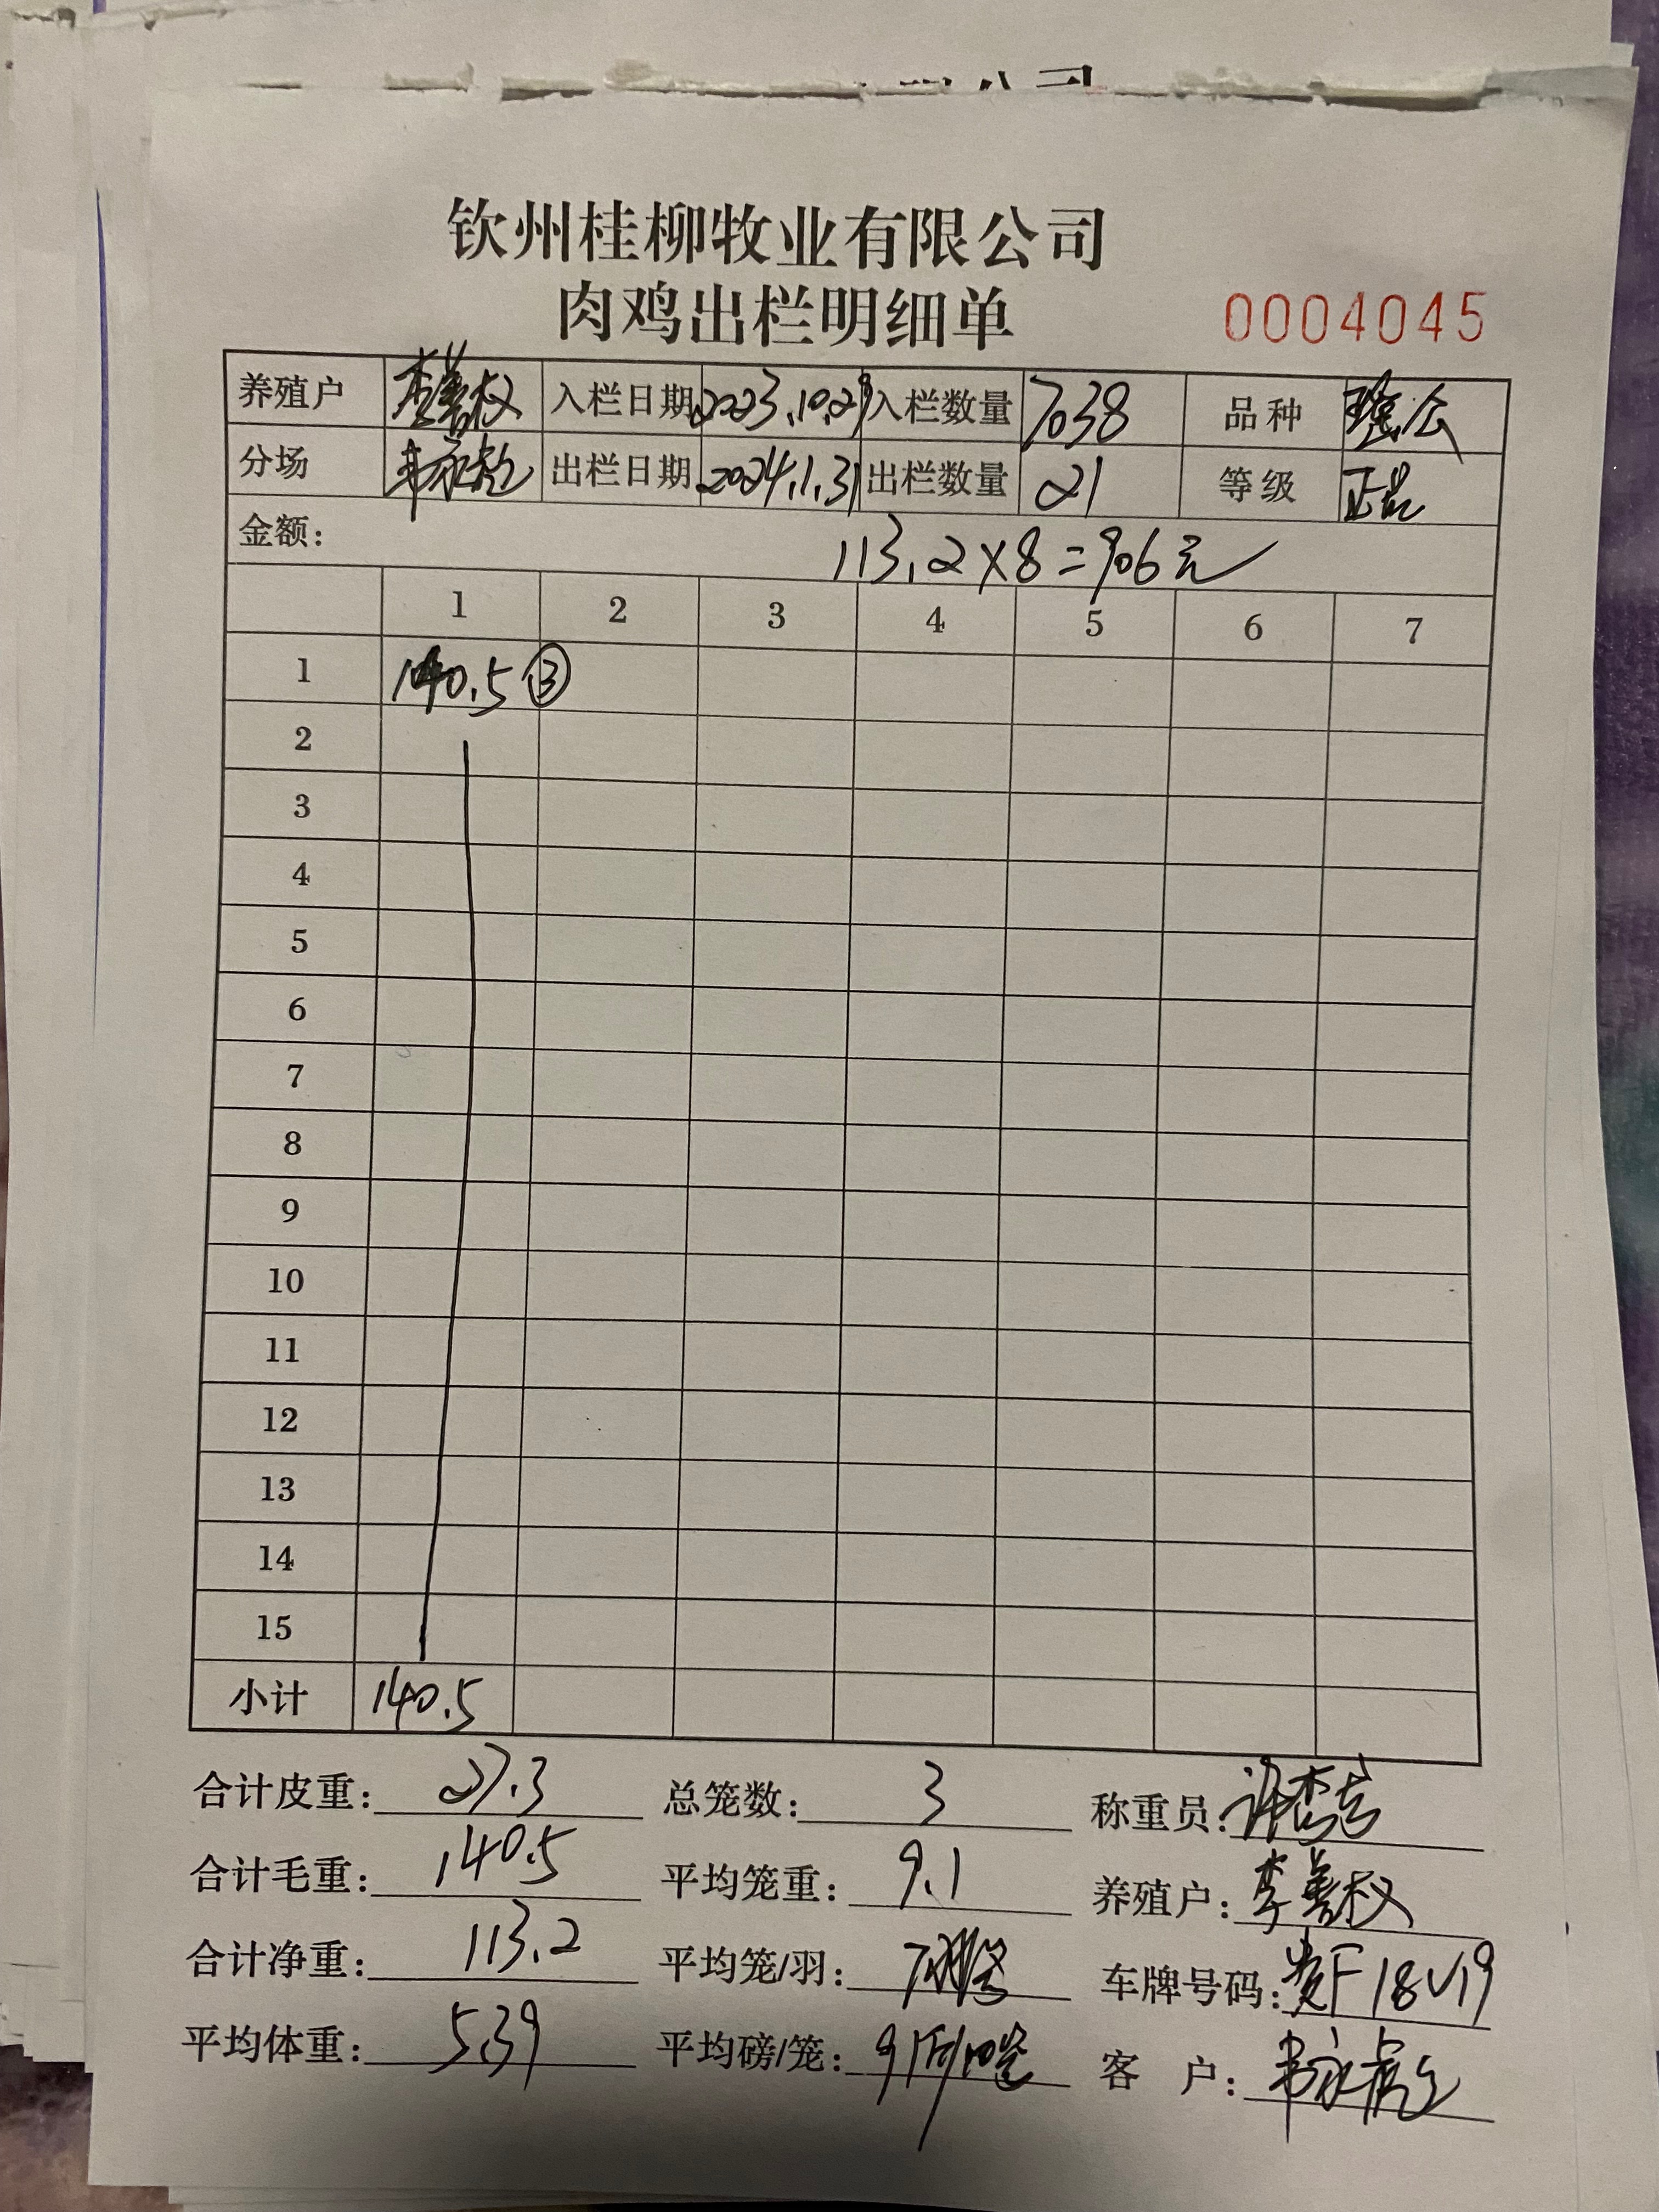 钦州桂柳牧业有限公司
肉鸡出栏明细单 0004045
养殖户 李善权 入栏日期 2023.10.29 入栏数量 7038 品种
分场 韦永 出栏日期 2024.1.31 出栏数量 21 等级 正品
金额: 113.2×8=906元
1 2 3 4 5 6 7
1 140.5 ③
2
3
4
5
6
7
8
9
10
11
12
13
14
15
小计 140.5
合计皮重: 27.3 总笼数: 3 称重员:
合计毛重: 140.5 平均笼重: 9.1 养殖户: 李善权
合计净重: 113.2 平均笼/羽: 7 车牌号码: F18V19
平均体重: 5.39 平均磅/笼: 客户: 韦永